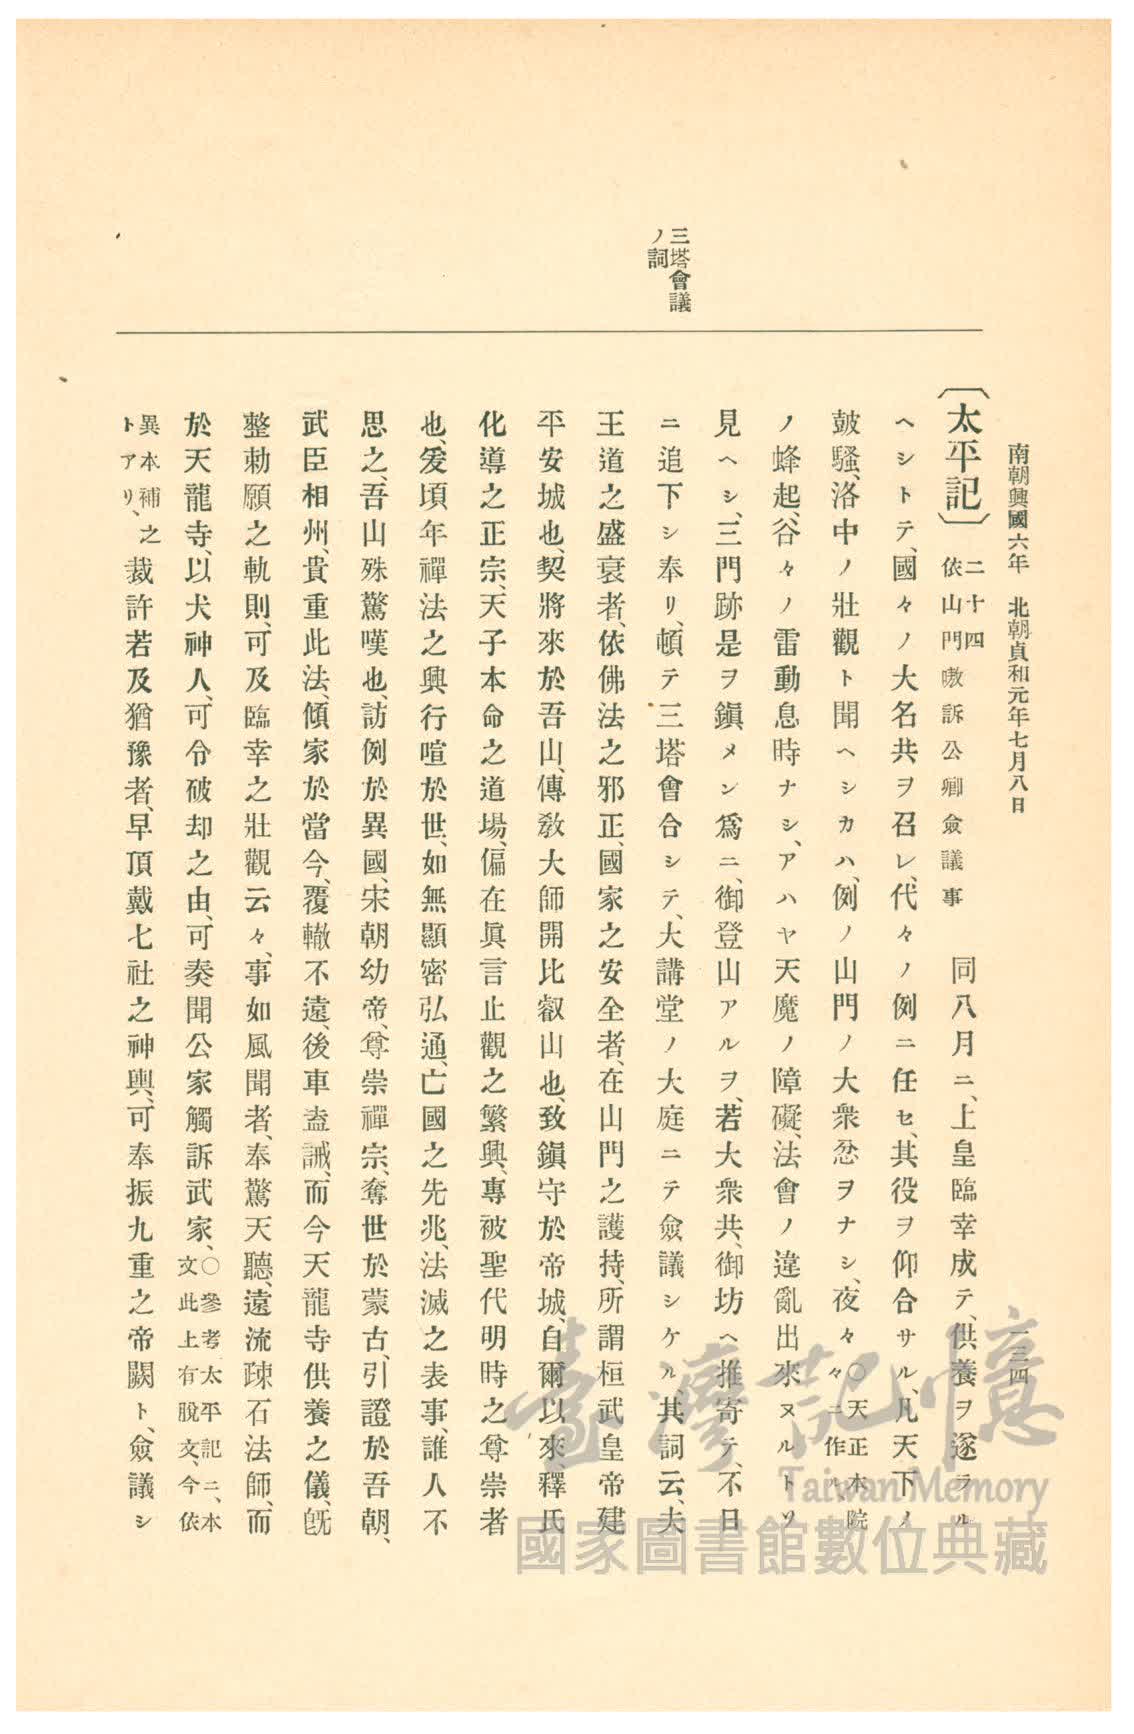 南朝興國六年 北朝貞和元年七月八日
一三四
三塔會議
ノ詞
〔太平記〕二十四 依山門嗷訴公卿僉議事 同八月ニ、上皇臨幸成テ、供養ヲ遂ラル
ヘシトテ、國々ノ大名共ヲ召レ、代々ノ例ニ任セ、其役ヲ仰合サル、凡天下ノ
皷騷、洛中ノ壯觀ト聞ヘシカハ、例ノ山門ノ大衆忿ヲナシ、夜々〇天正本院々ニ作ル、
ノ蜂起、谷々ノ雷動息時ナシ、アハヤ天魔ノ障礙、法會ノ違亂出來ヌルトソ
見ヘシ、三門跡是ヲ鎭メン爲ニ、御登山アルヲ、若大衆共、御坊ヘ推寄テ、不日
ニ追下シ奉リ、頓テ三塔會合シテ、大講堂ノ大庭ニテ僉議シケル、其詞云、夫
王道之盛衰者、依佛法之邪正、國家之安全者、在山門之護持、所謂桓武皇帝建
平安城也、契將來於吾山、傳敎大師開比叡山也、致鎭守於帝城、自爾以來、釋氏
化導之正宗、天子本命之道場、偏在眞言止觀之繁興、專被聖代明時之尊崇者
也、爰頃年禪法之興行喧於世、如無顯密弘通、亡國之先兆、法滅之表事、誰人不
思之、吾山殊驚嘆也、訪例於異國、宋朝幼帝、尊崇禪宗、奪世於蒙古、引證於吾朝、
武臣相州、貴重此法、傾家於當今、覆轍不遠、後車盍誡、而今天龍寺供養之儀、旣
整勅願之軌則、可及臨幸之壯觀云々、事如風聞者、奉驚天聽、遠流疎石法師、而
於天龍寺、以犬神人、可令破却之由、可奏聞公家觸訴武家、〇參考太平記ニ、本文此上有脫文、今依
異本補之トアリ、裁許若及猶豫者、早頂戴七社之神輿、可奉振九重之帝闕ト、僉議シ
臺灣記憶
Taiwan Memory
國家圖書館數位典藏